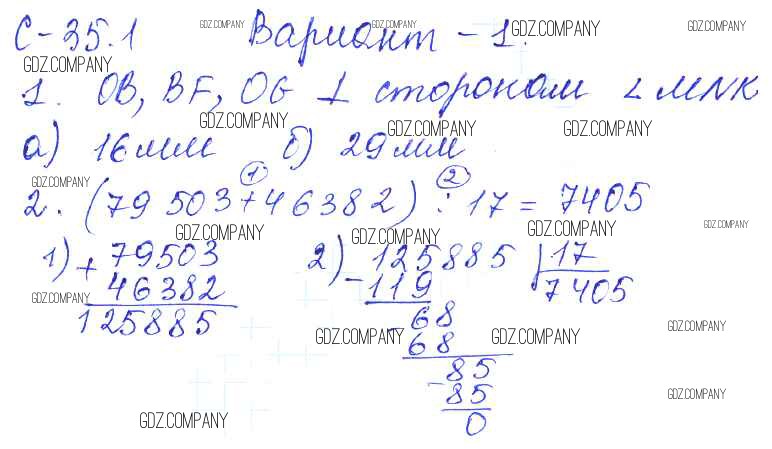 С-35.1 GDZ.COMPANY Вариант - 1. GDZ.COMPANY GDZ.COMPANY GDZ.COMPANY
GDZ.COMPANY
1. OB, BF, OG ⊥ сторонам ∠ MNK
GDZ.COMPANY GDZ.COMPANY GDZ.COMPANY
а) 16 мм б) 29 мм
GDZ.COMPANY ① ②
2. (79 503 + 46 382) : 17 = 7405
GDZ.COMPANY GDZ.COMPANY GDZ.COMPANY GDZ.COMPANY
1) + 79503 2) - 125885 | 17
46382 119 7405
GDZ.COMPANY
125885 - 68
GDZ.COMPANY GDZ.COMPANY GDZ.COMPANY
68
85
- 85
GDZ.COMPANY
GDZ.COMPANY 0